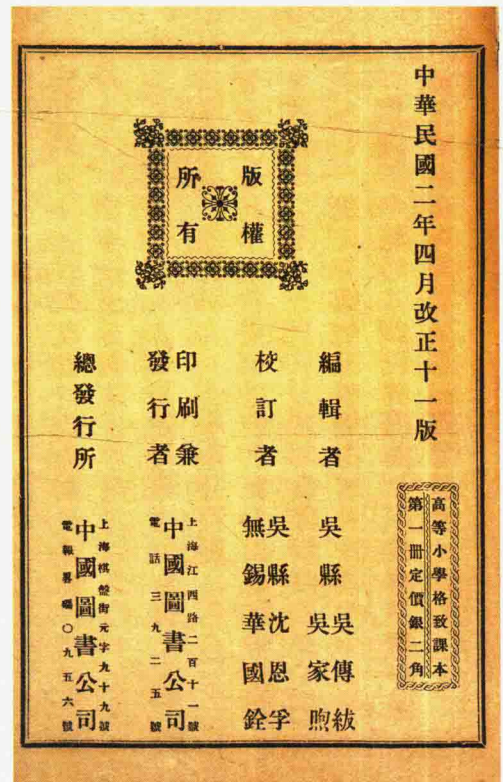 中華民國二年四月改正十一版
高等小學格致課本
第一冊定價銀二角
版權
所有
編輯者
吳縣
吳傳紱
吳家煦
校訂者
吳縣沈恩孚
無錫華國銓
印刷兼
發行者
上海江西路二百十一號
中國圖書公司
電話三九二五號
總發行所
上海棋盤街元字九十九號
中國圖書公司
電報署碼〇九五六號